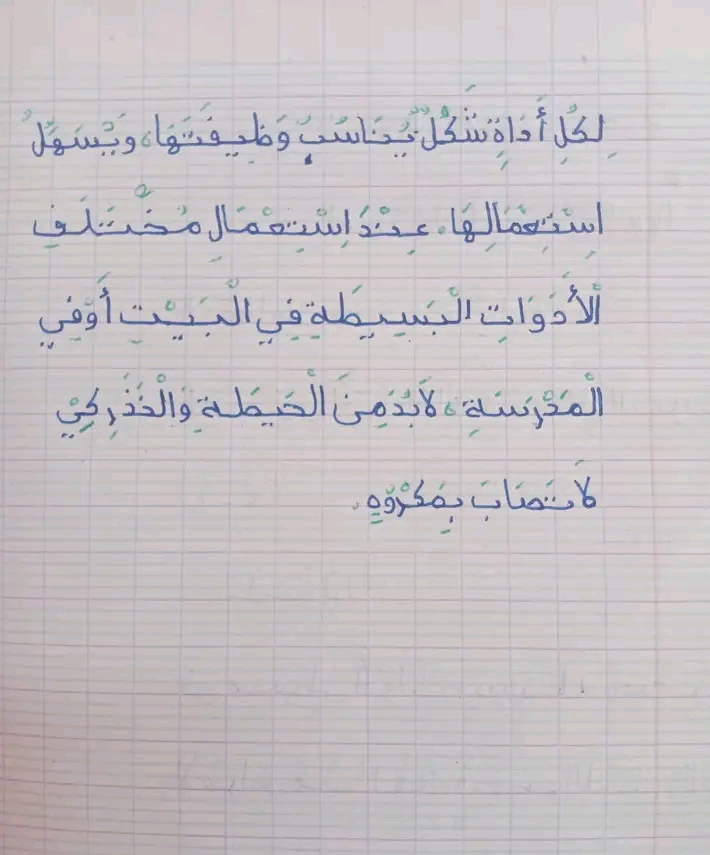 لِكُلِّ أَدَاةٍ شَكْلٌ يُنَاسِبُ وَظِيفَتَهَا، وَيُسَهِّلُ
اِسْتِعْمَالِهَا. عِنْدَ اِسْتِعْمَالِ مُخْتَلَفِ
الْأَدَوَاتِ الْبَسِيطَةِ فِي الْبَيْتِ أَوْ فِي
الْمَدْرَسَةِ، لاَبُدَ مِنَ الْحَيطَةِ وَالْحَذَرِ كَيْ
لاَ تُصَابَ بِمَكْرُوهٍ.